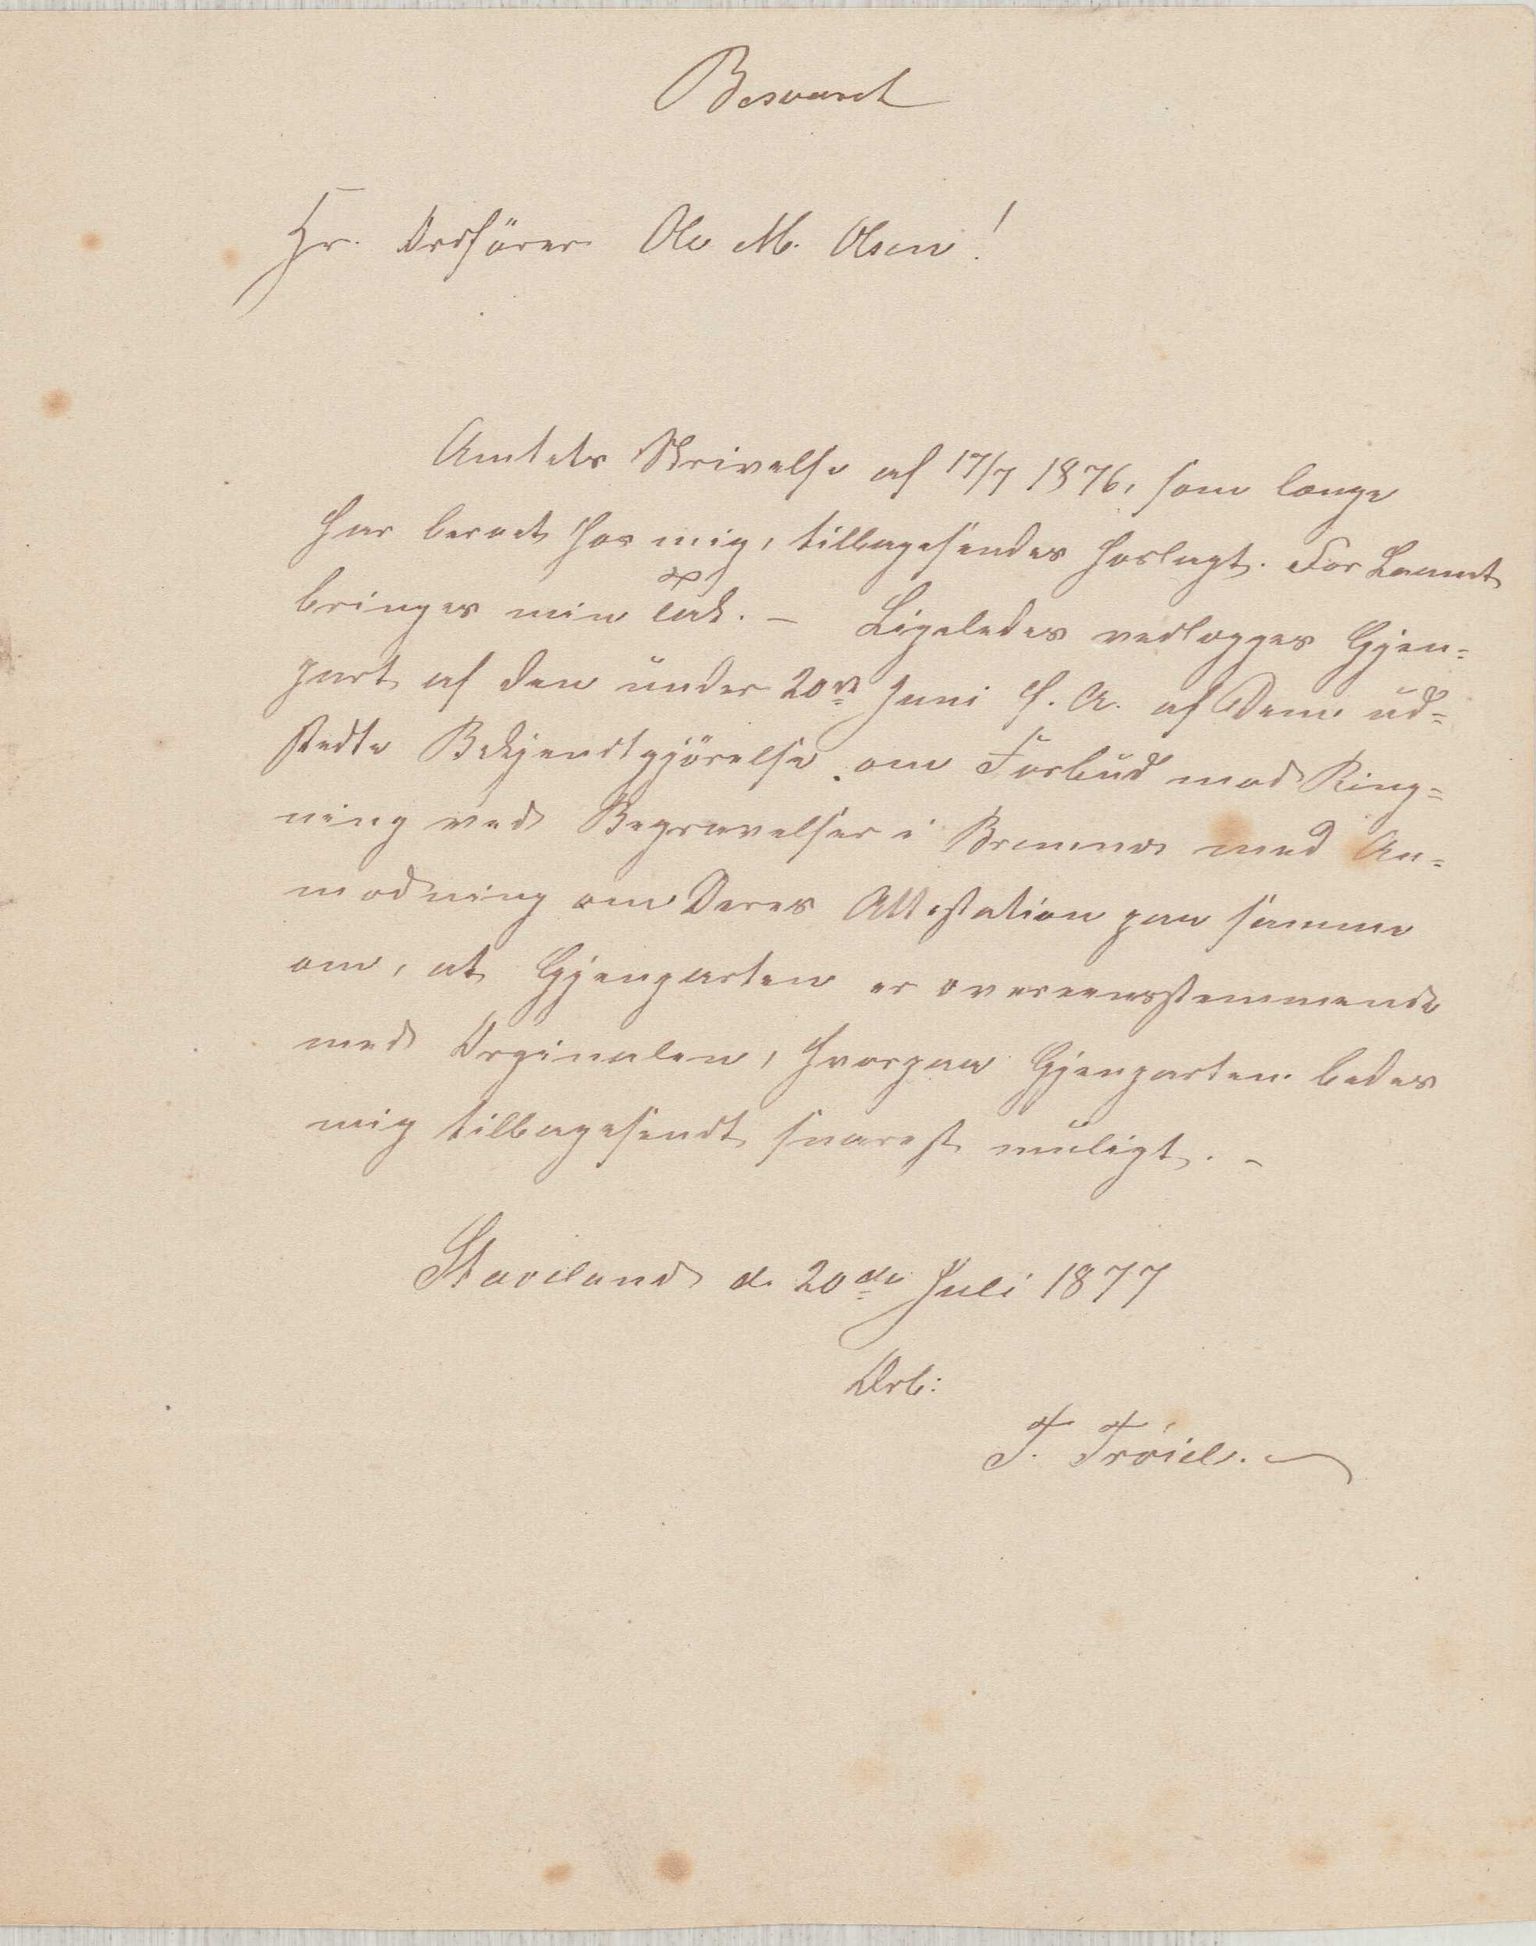 Besvaret
Hr. Ordförer Ole M. Olsen!
Amtets Skrivelse af 17/7 1876, som længe
har beroet hos mig, tilbagesendes hoslagt. For Laanet
bringes min Tak. – Ligeledes vedlægges Gjen=
part af den under 20de Juni d. A. af Dem ud=
stedte Bekjendtgjörelse om Forbud mod Ring=
ning ved Begravelser i Bremnes med An=
modning om Deres Attestation paa samme
om, at Gjenparten er overeensstemmende
med Orginalen, hvorpaa Gjenparten bedes
mig tilbagesendt snarest muligt. –
Staveland d. 20de Juli 1877
Ærb:
F. Frøiel.